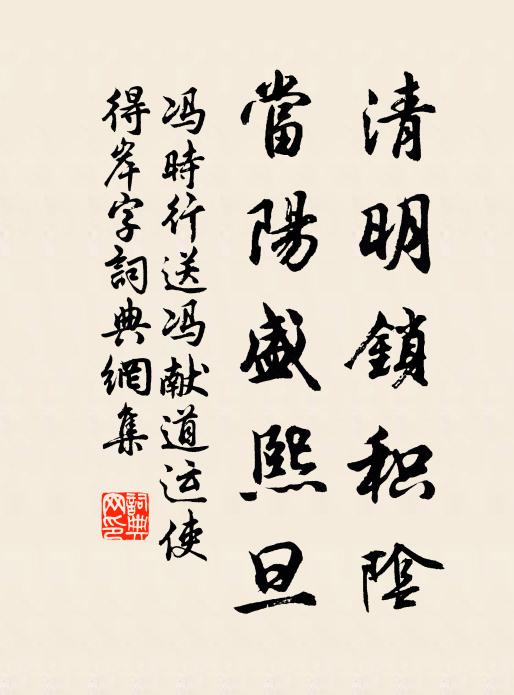 清明鎖积陰
當陽盛熙旦
冯時行送冯献道运使
得岸字詞典網集
詞典网印